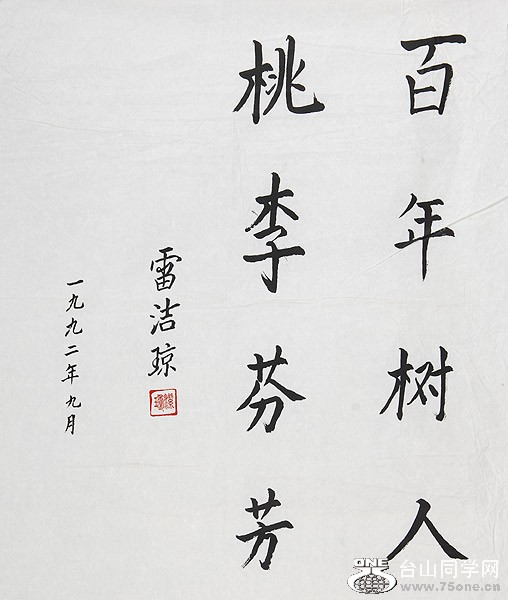 百年树人
桃李芬芳
雷洁琼
一九九二年九月
ONE
台山同学网
www.75one.cn